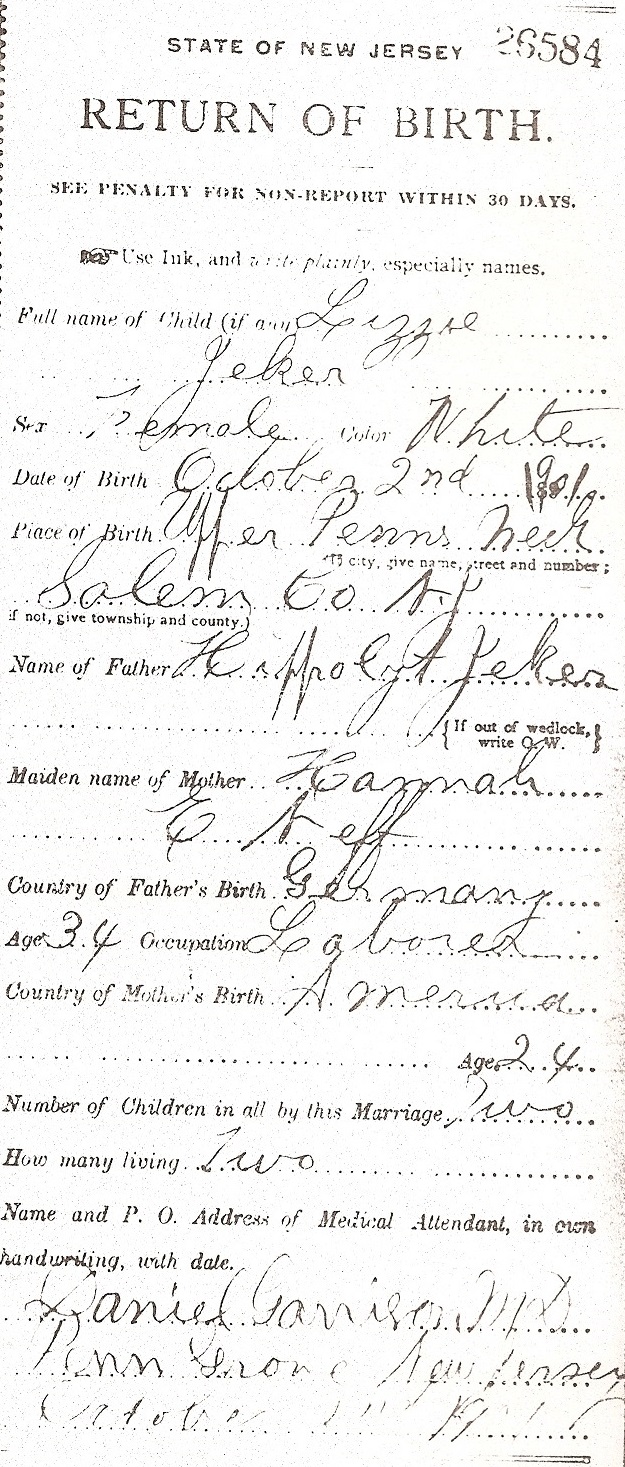 STATE OF NEW JERSEY 26584
RETURN OF BIRTH.
SEE PENALTY FOR NON-REPORT WITHIN 30 DAYS.
☞ Use Ink, and write plainly, especially names.
Full name of Child (if any) Lizzie
Jeker
Sex Female Color White
Date of Birth October 2nd 1901
Place of Birth Upper Penns Neck
(If city, give name, street and number;
Salem Co N.J
if not, give township and county.)
Name of Father Hippolyt Jeker
{If out of wedlock, write O. W.}
Maiden name of Mother Hannah
E Neff
Country of Father's Birth Germany
Age 34 Occupation Laborer
Country of Mother's Birth America
Age 24
Number of Children in all by this Marriage Two
How many living Two
Name and P. O. Address of Medical Attendant, in own
handwriting, with date.
Daniel Garrison MD
Penn Grove New Jersey
October